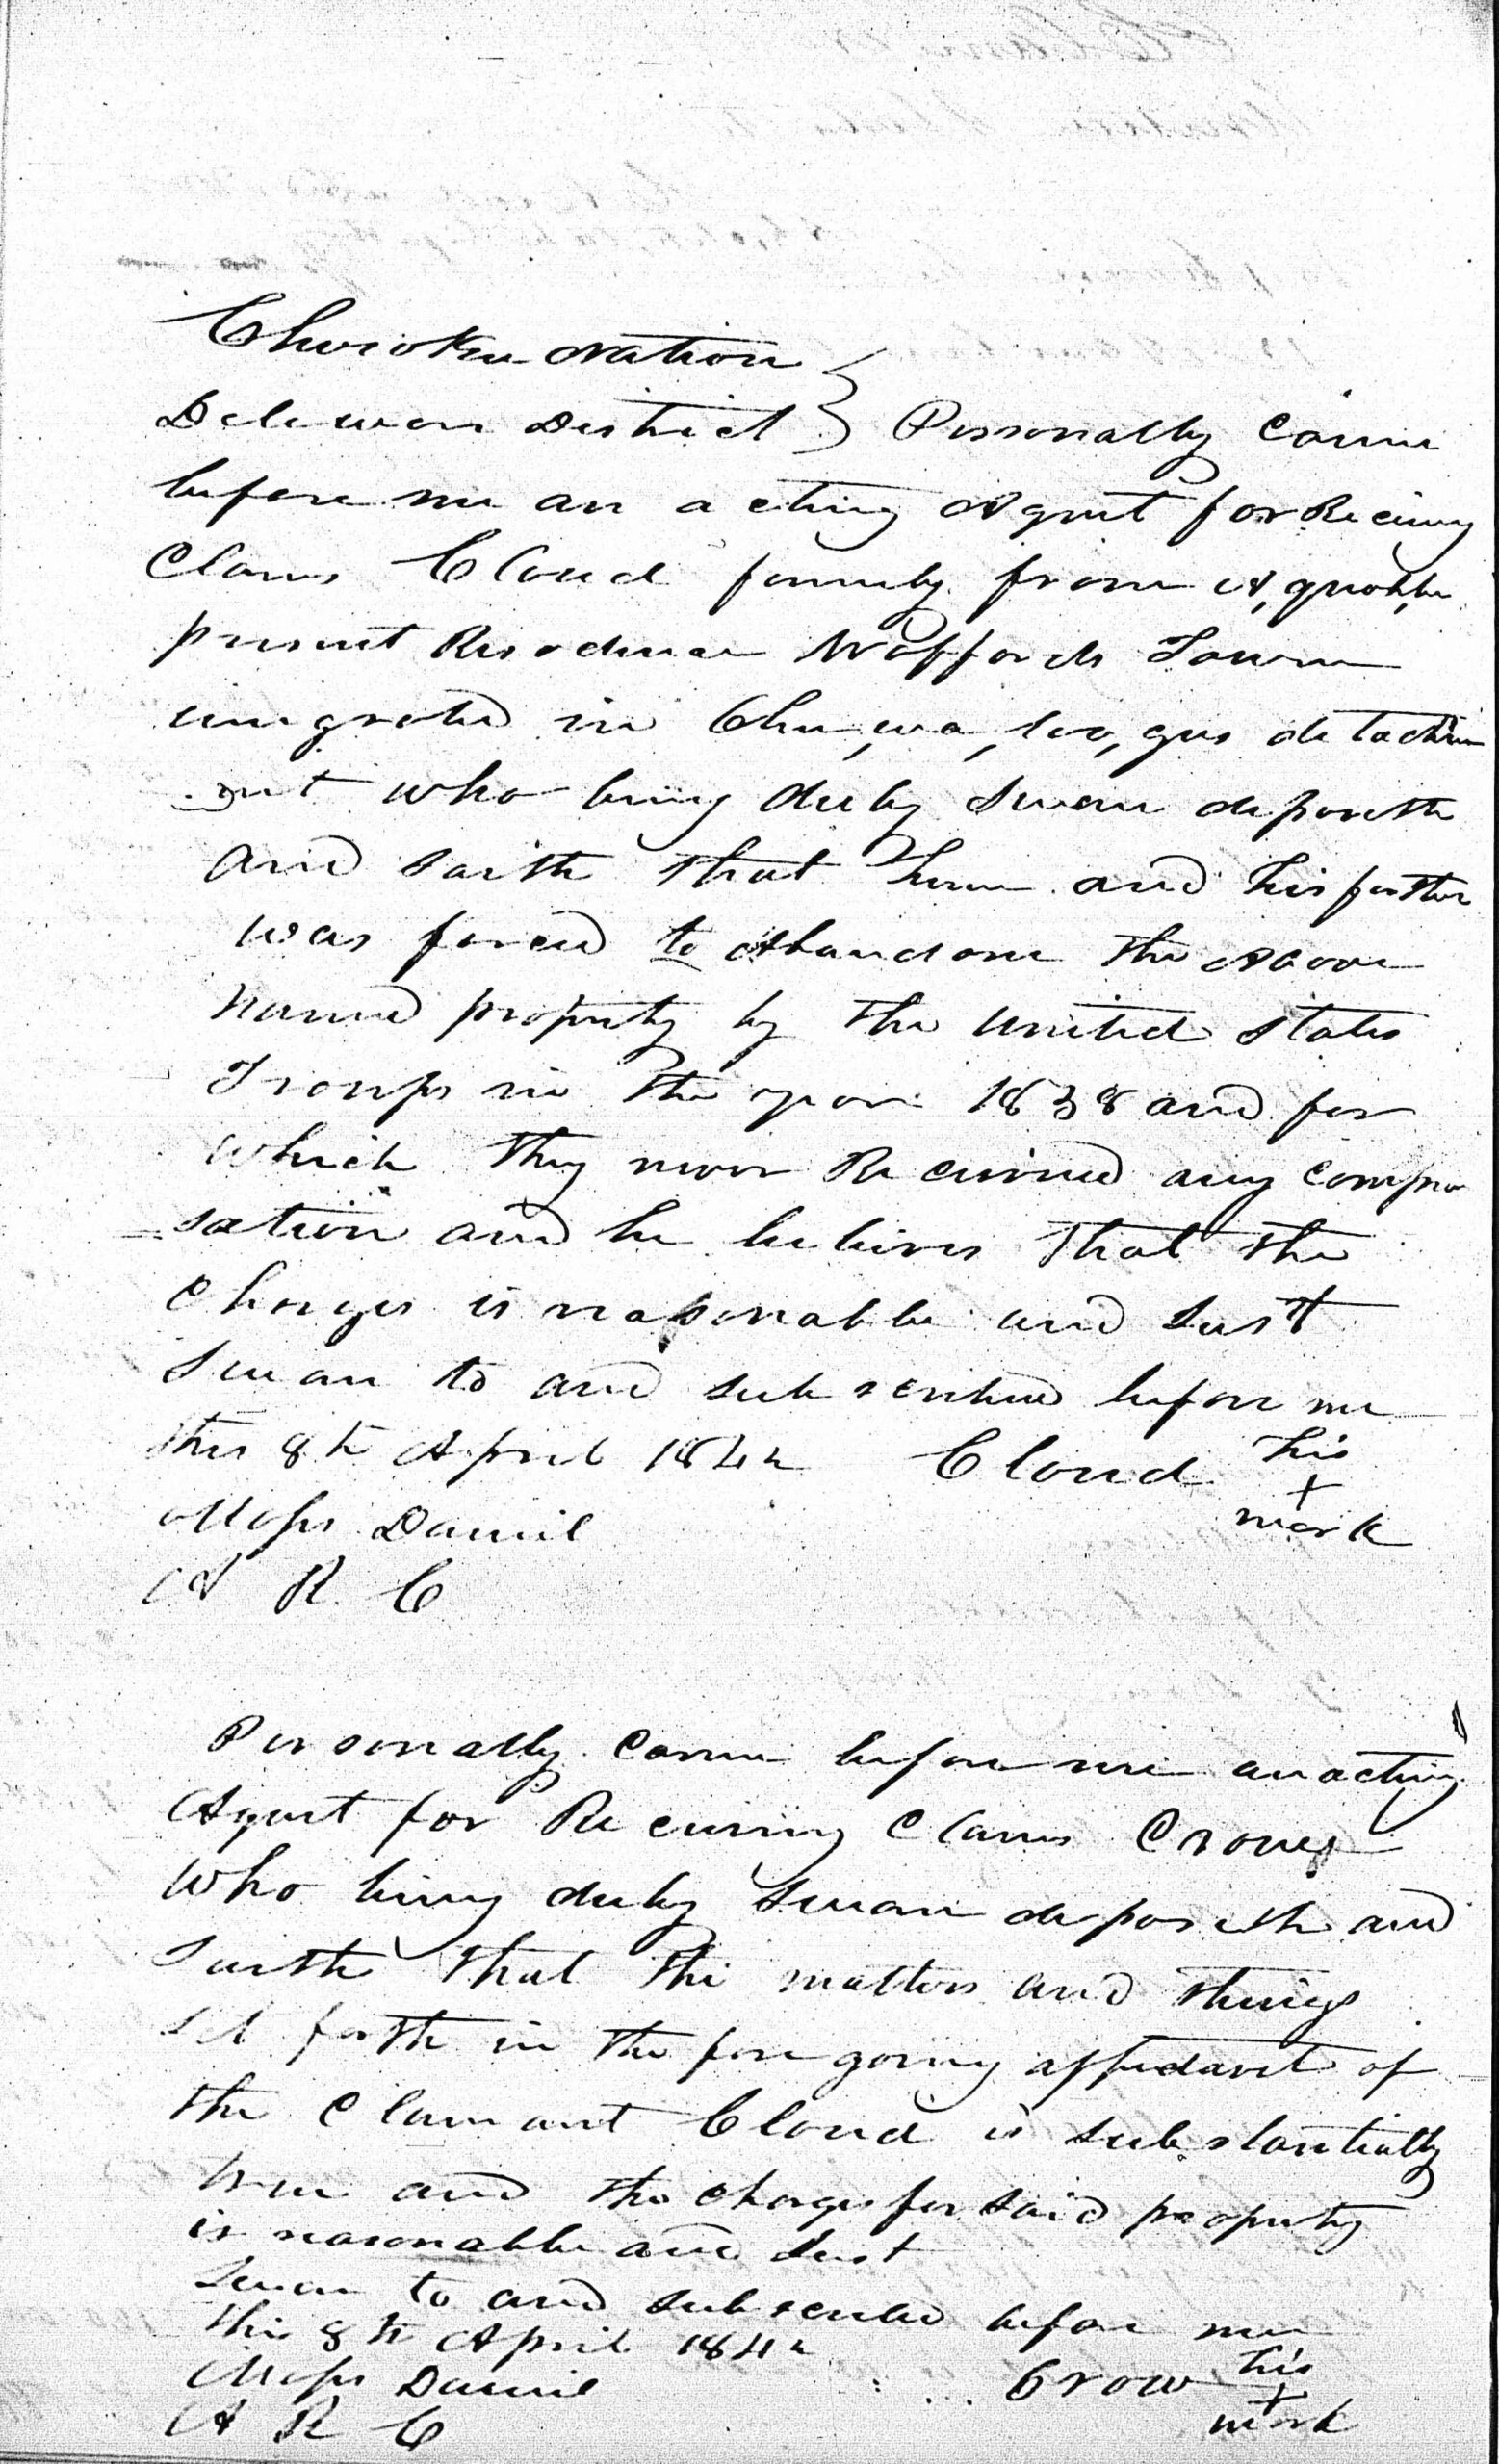 Cherokee Nation }
Delewar District } Personally Came
before me an acting Agent for Receiving
Claims Cloud formerly from A,quohhe
present Residence Woffords Town
emigrated in Chu,wa,loo,gus detachm
ent who being duly Sworn deposeth
and saith that him and his father
was forced to Abandone the Above
named property by the United States
Troops in the year 1838 and for
which they never Received any compen
sation and he believes that the
Charges is reasonable and Just
Sworn to and subscribed before me
this 8th April 1842 Cloud his
x
mark
Moses Daniel
A R C
Personally Came before me an acting
Agent for Receiving Claims Crow
who being duly Sworn deposeth and
Saith that the matters and things
set forth in the fore going affidavit of
the Claimant Cloud is substantially
true and the Charges for Said property
is reasonable and Just
Sworn to and subscribed before me
this 8th April 1842
Moses Daniel Crow his
x
A R C mark